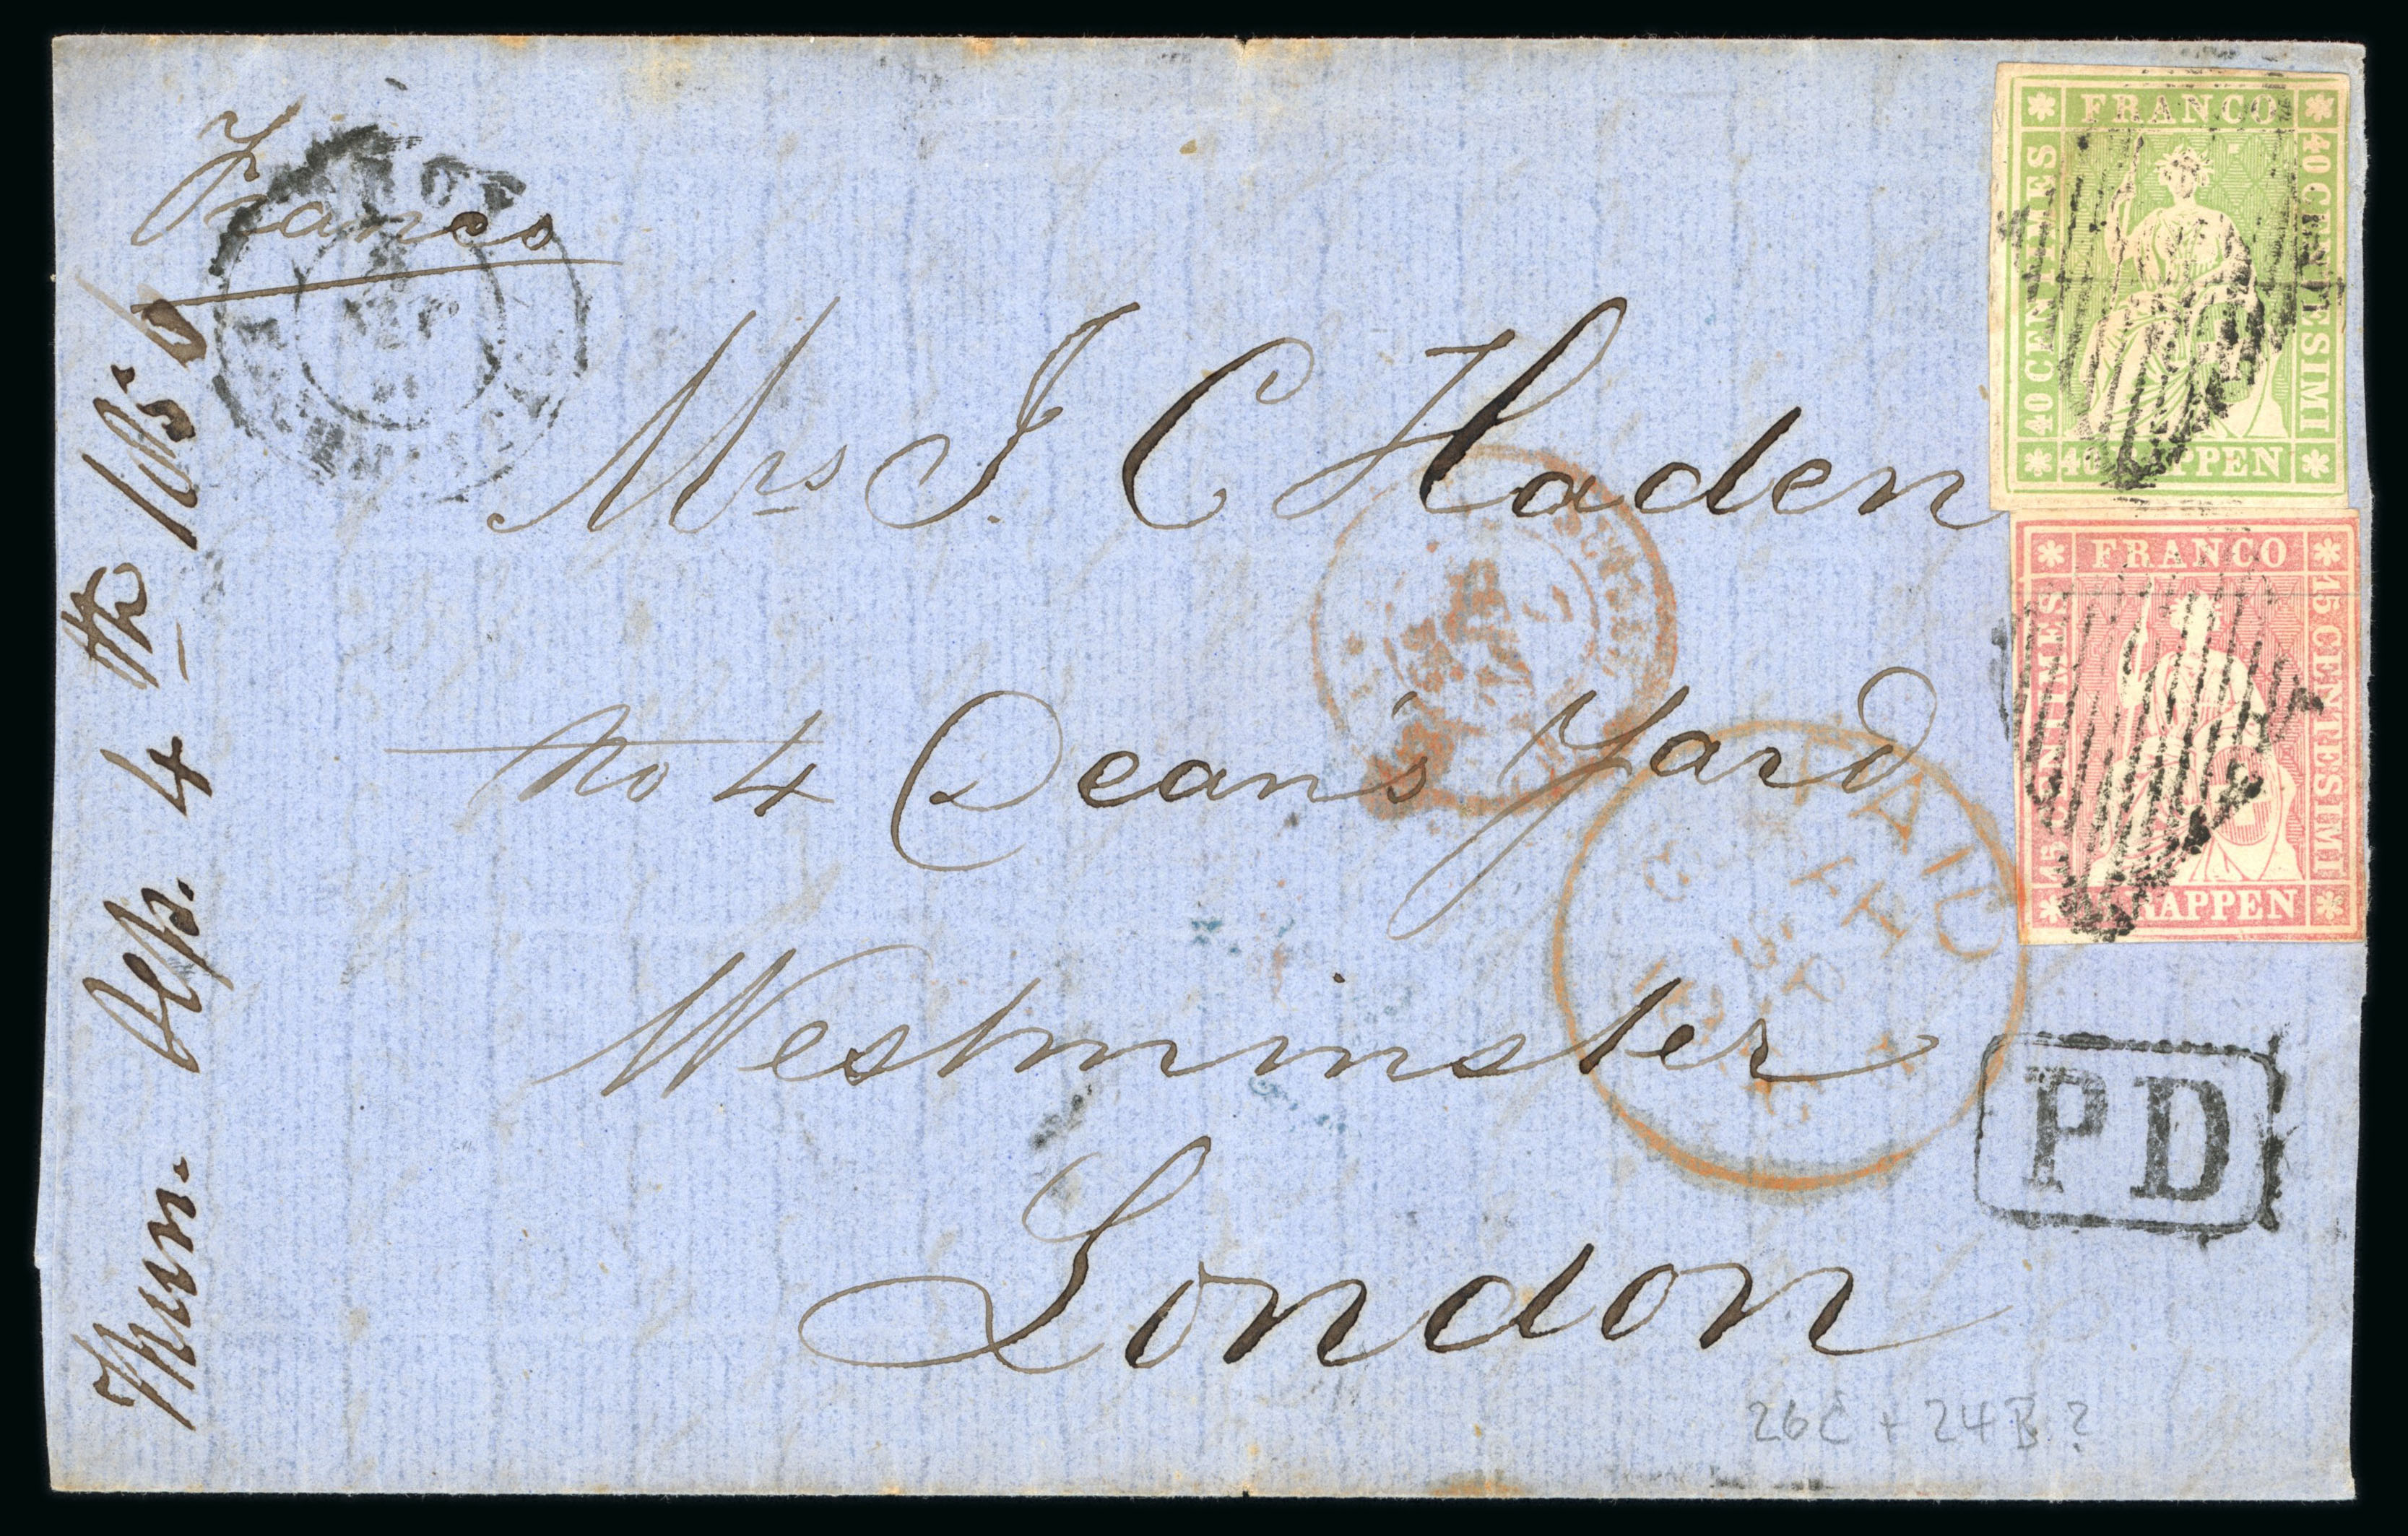 Franco
Mrs J. C Haden
No 4 Dean's Yard
Westminster
London
Thun. Sep. 4 th 1856
FRANCO
40 CENTIMES
40 CENTESIMI
RAPPEN
FRANCO
15 CENTIMES
15 CENTESIMI
RAPPEN
PAID
PD
26C + 24B ?